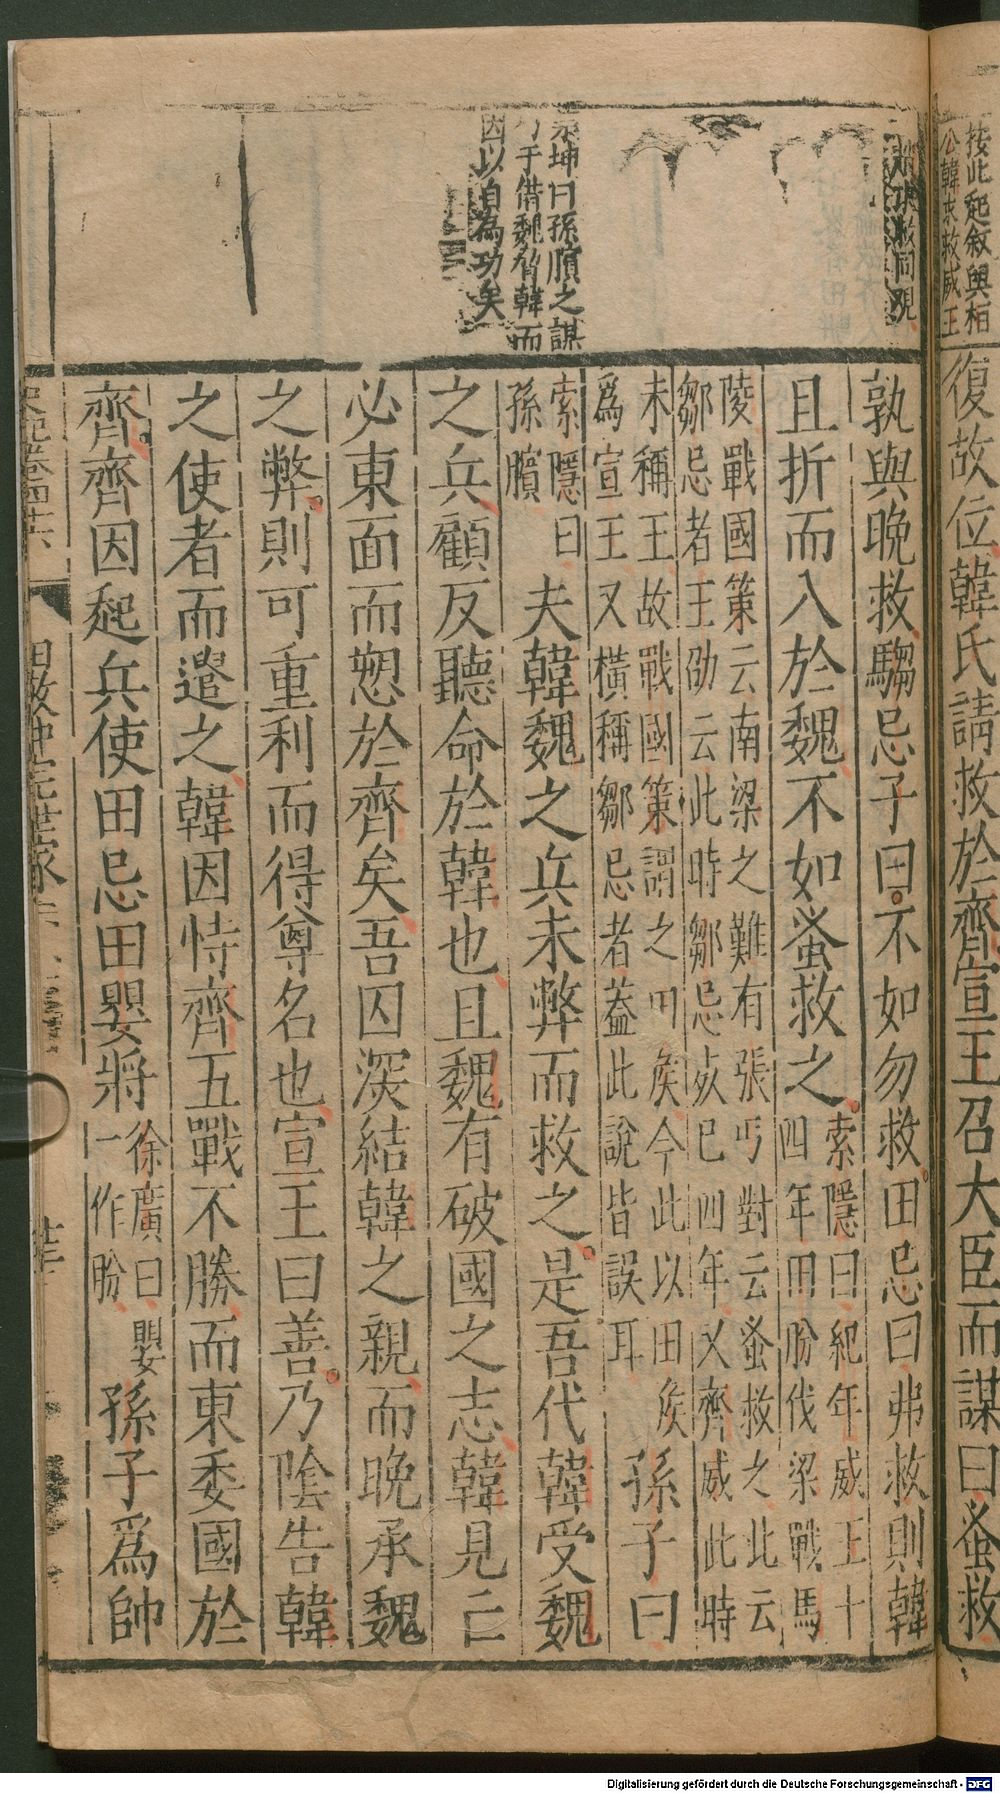 按此起敘與桓
公韓求救威王
復故位韓氏請救於齊宣王召大臣而謀曰蚤救
求救同覡
孰與晚救騶忌子曰不如勿救田忌曰弗救則韓
且折而入於魏不如蚤救之
索隱曰紀年威王十
四年田肦伐梁戰馬
陵戰國策云南梁之難有張丐對云蚤救之此云
鄒忌者王劭云此時鄒忌死巳四年又齊威此時
未稱王故戰國策謂之田侯今此以田侯
爲宣王又橫稱鄒忌者蓋此說皆誤耳
孫子曰
索隱曰
孫臏
夫韓魏之兵未弊而救之是吾代韓受魏
之兵顧反聽命於韓也且魏有破國之志韓見亡
必東面而愬於齊矣吾因深結韓之親而晚承魏
之弊則可重利而得尊名也宣王曰善乃陰告韓
之使者而遣之韓因恃齊五戰不勝而東委國於
齊齊因起兵使田忌田嬰將
徐廣曰嬰
一作肦
孫子爲帥
坤曰孫臏之謀
于借魏斃韓而
因以自為功矣
史記卷四十六
田敬仲完世家
Digitalisierung gefördert durch die Deutsche Forschungsgemeinschaft - DFG